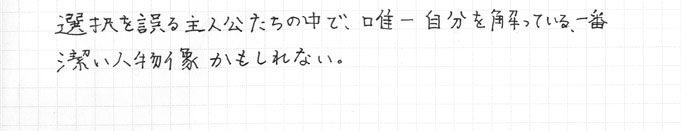 選択を誤る主人公たちの中で、唯一自分を解っている、一番
潔い人物像かもしれない。